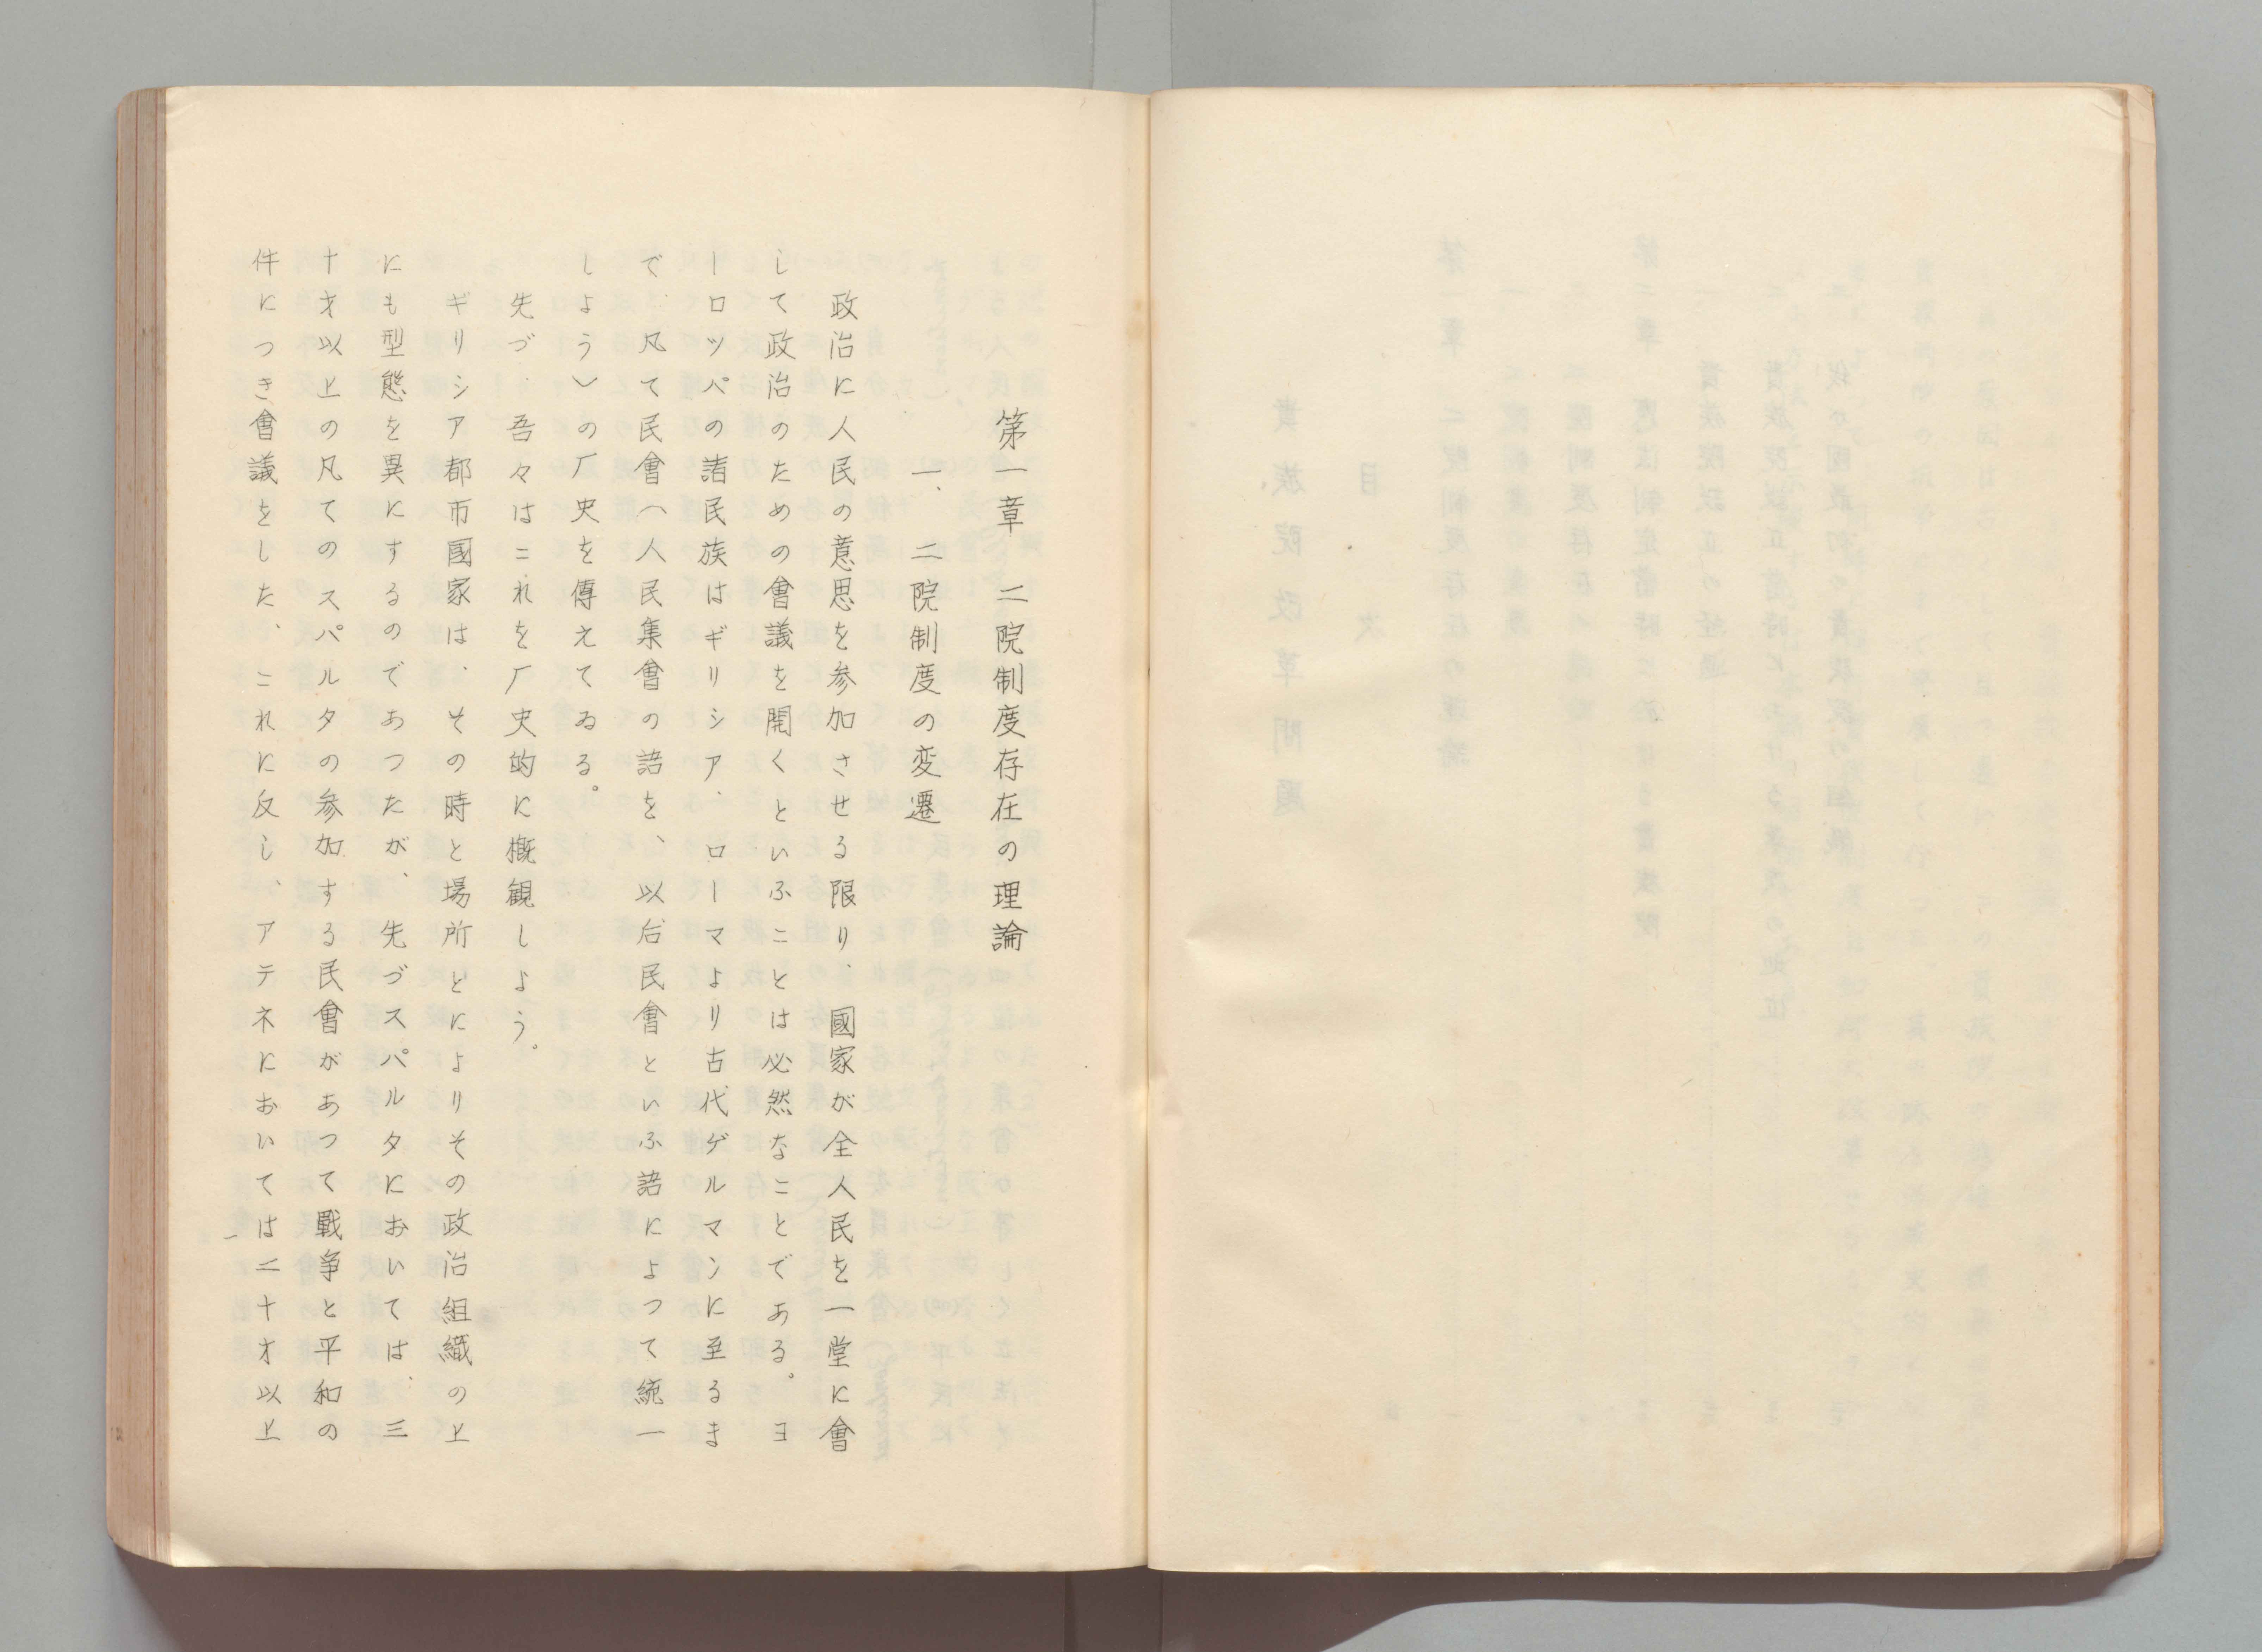 第一章　二院制度存在の理論
一、二院制度の変遷
政治に人民の意思を参加させる限り、國家が全人民を一堂に會
して政治のための會議を開くといふことは必然なことである。ヨ
ーロツパの諸民族はギリシア、ローマより古代ゲルマンに至るま
で、凡て民會（人民集會の語を、以后民會といふ語によつて統一
しよう）の厂史を傳えてゐる。
先づ、吾々はこれを厂史的に概観しよう。
ギリシア都市國家は、その時と場所とによりその政治組織の上
にも型態を異にするのであつたが、先づスパルタにおいては、三
十才以上の凡てのスパルタの参加する民會があつて戰争と平和の
件につき會議をした、これに反し、アテネにおいては二十才以上